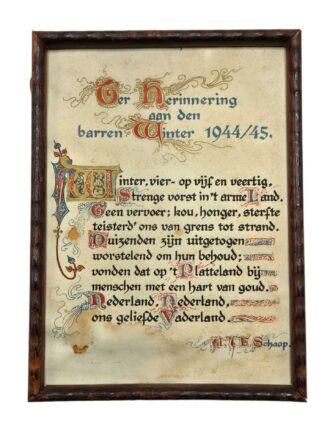 Ter Herinnering
aan den
barren Winter 1944/45.
Winter, vier- op vijf en veertig,
Strenge vorst in 't arme Land.
Geen vervoer; kou, honger, sterfte
teisterd' ons van grens tot strand.
Duizenden zijn uitgetogen
worstelend om hun behoud;
vonden dat op 't Platteland bij
menschen met een hart van goud.
Nederland, Nederland,
ons geliefde Vaderland.
Schaap.